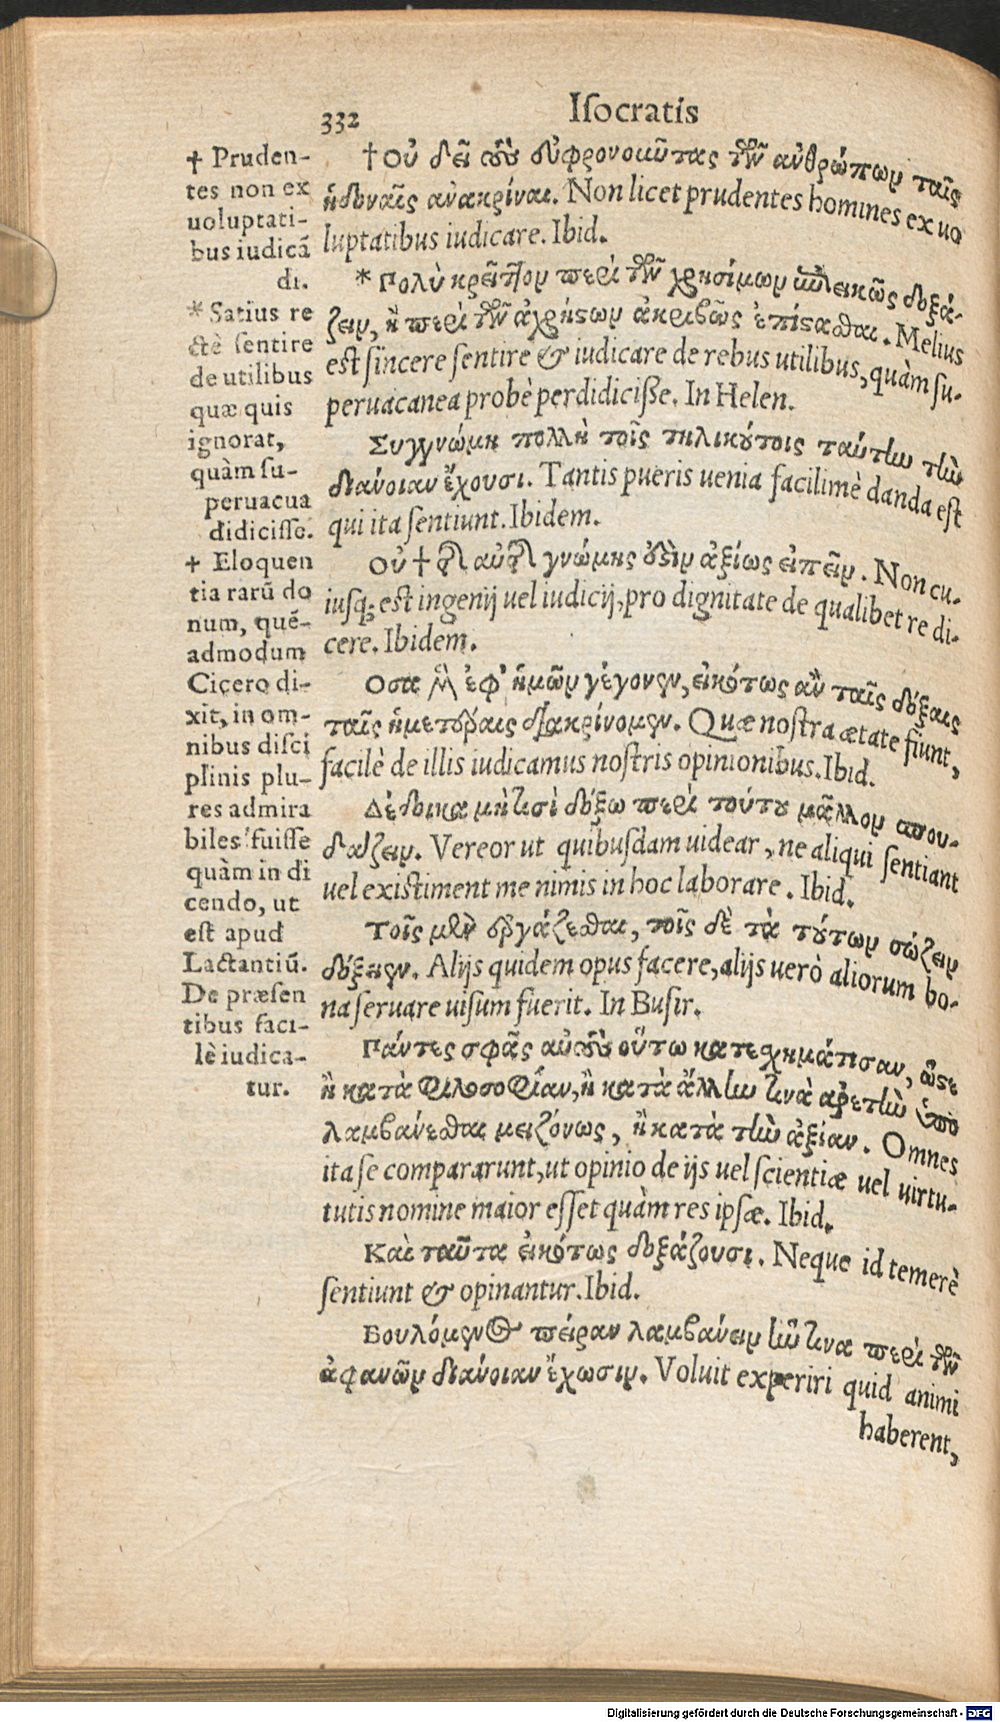 332 Isocratis
† Pruden-
tes non ex
uoluptati-
bus iudicā
di.
* Satius re
ctè sentire
de utilibus
quæ quis
ignorat,
quàm su-
peruacua
didicisse.
† Eloquen
tia rarū do
num, quē-
admodum
Cicero di-
xit, in om-
nibus disci
plinis plu-
res admira
biles fuisse
quàm in di
cendo, ut
est apud
Lactantiū.
De præsen
tibus faci-
lè iudica-
tur.
†Οὐ δεῖ τοὺς εὐφρονοιοῦτας τῶν ἀνθρώπων ταῖς
ἡδοναῖς ἀνακρίναι. Non licet prudentes homines ex uo
luptatibus iudicare. Ibid.
*Πολὺ κρεῖττον περὶ τῶν χρησίμων ἐπιεικῶς δοξά-
ζειν, ἢ περὶ τῶν ἀχρήστων ἀκριβῶς ἐπίστασθαι. Melius
est sincere sentire & iudicare de rebus utilibus, quàm su-
peruacanea probè perdidicisse. In Helen.
Συγγνώμη πολλὴ τοῖς τηλικούτοις ταύτην τὴν
διάνοιαν ἔχουσι. Tantis pueris uenia facilimè danda est
qui ita sentiunt. Ibidem.
Οὐ † γνώμης οὐδὲν ἀξίως εἰπεῖν. Non cu-
iusq; est ingenij uel iudicij, pro dignitate de qualibet re di-
cere. Ibidem.
Οσα δ' ἐφ' ἡμῶν γέγονεν, εἰκότως ἂν ταῖς δόξαις
ταῖς ἡμετέραις διακρίνομεν. Quæ nostra ætate fiunt,
facilè de illis iudicamus nostris opinionibus. Ibid.
Δέδοικα μὴ τισὶ δόξω περὶ τούτου μᾶλλον σπου-
δάζειν. Vereor ut quibusdam uidear, ne aliqui sentiant
uel existiment me nimis in hoc laborare. Ibid.
Τοῖς μὲν ἐργάζεσθαι, τοῖς δὲ τὰ τούτων σώζειν
δόξειεν. Alijs quidem opus facere, alijs uerò aliorum bo-
na seruare uisum fuerit. In Busir.
Πάντες σφᾶς αὐτοὺς οὕτω κατεχημάτισαν, ὥστε
ἢ κατὰ φιλοσοφίαν, ἢ κατὰ ἄλλην τινὰ ἀρετὴν ὑπο
λαμβάνεσθαι μειζόνως, ἢ κατὰ τὴν ἀξίαν. Omnes
ita se compararunt, ut opinio de ijs uel scientiæ uel uirtu-
tutis nomine maior esset quàm res ipsæ. Ibid.
Καὶ ταῦτα εἰκότως δοξάζουσι. Neque id temerè
sentiunt & opinantur. Ibid.
Βουλόμενος πείραν λαμβάνειν ἥν τινα περὶ τῶν
ἀφανῶν διάνοιαν ἔχωσιν. Voluit experiri quid animi
haberent,
Digitalisierung gefördert durch die Deutsche Forschungsgemeinschaft - DFG